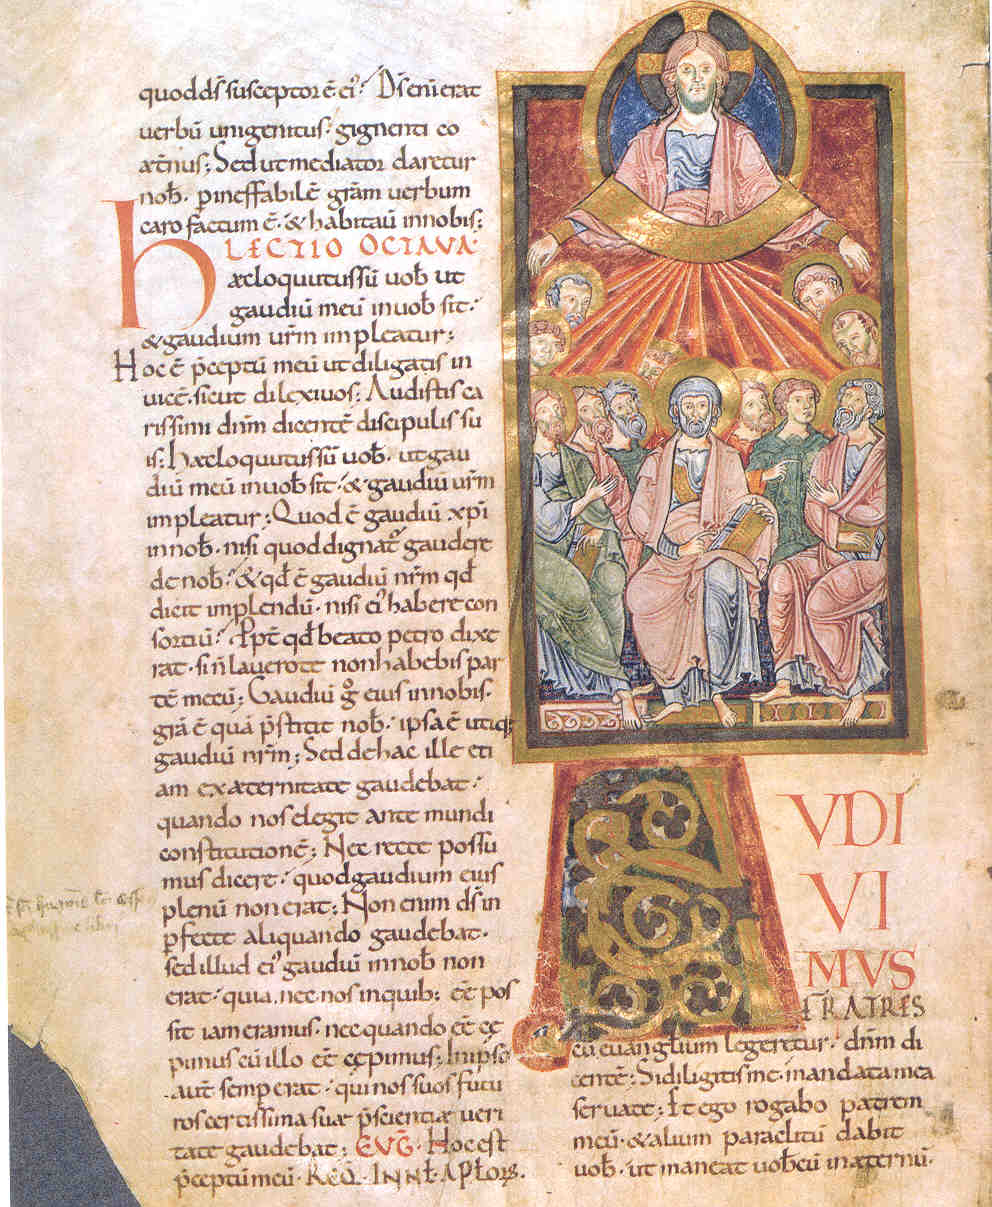 quod dſ suſceptor ē ei᾽. Dſ enī erat
uerbū unigenitus· gignenti co
æt̄nus; Sed ut mediator daretur
nob̄· p ineffabilē grām uerbum
caro factum ē· & habitauit in nobis;
LECTIO OCTAVA·
Hæc loquutus sū uob̄ ut
gaudiū meū in uob̄ sit·
& gaudium urm̄ impleatur;
Hoc ē p̄ceptū meū ut diligatis in
uicē· sicut dilexi uos; Audistis ca
rissimi dnm̄ dicentē discipulis su
is; Hæc loquutus sū uob̄· ut gau
diū meū in uob̄ sit· & gaudiū urm̄
impleatur; Quod ē gaudiū xpi
in nob̄· nisi quod dignat᾽ gaudere
de nob̄· & qd̄ ē gaudiū nrm̄ qd̄
dicit implendū· nisi ei᾽ habere con
sortiū? Ppt̄ qd̄ beato petro dixe
rat· si n̄ lauero te non habebis par
tē mecū; Gaudiū gͦ eius in nobis·
grā ē quā p̄stitit nob̄· ipsa ē utiq;
gaudiū nrm̄; Sed de hac ille eti
am ex æternitate gaudebat·
quando nos elegit ante mundi
constitutionē; Nec recte possu
mus dicere· quod gaudium eius
plenū non erat; Non enim ds̄ in
pfecte aliquando gaudebat·
sed illud ei᾽ gaudiū in nob̄ non
erat· quia nec nos in quib; ēē pos
sit iam eramus· nec quando ēē cę
pimus cū illo ēē cępimus; In ipso
aut̄ semp erat· qui nos suos futu
ros certissima suæ p̄scientiæ ueri
tate gaudebat; EVḠ· Hoc est
p̄ceptū meū· REQ· IN NT̄ APLORS·
AVDI
VI
MVS
FRATRES
cū euanglium legeretur· dnm̄ di
centē; Si diligitis me· mandata mea
seruate; Et ego rogabo patrem
meū· & alium paraclitū dabit
uob̄· ut maneat uobcū in æternū·